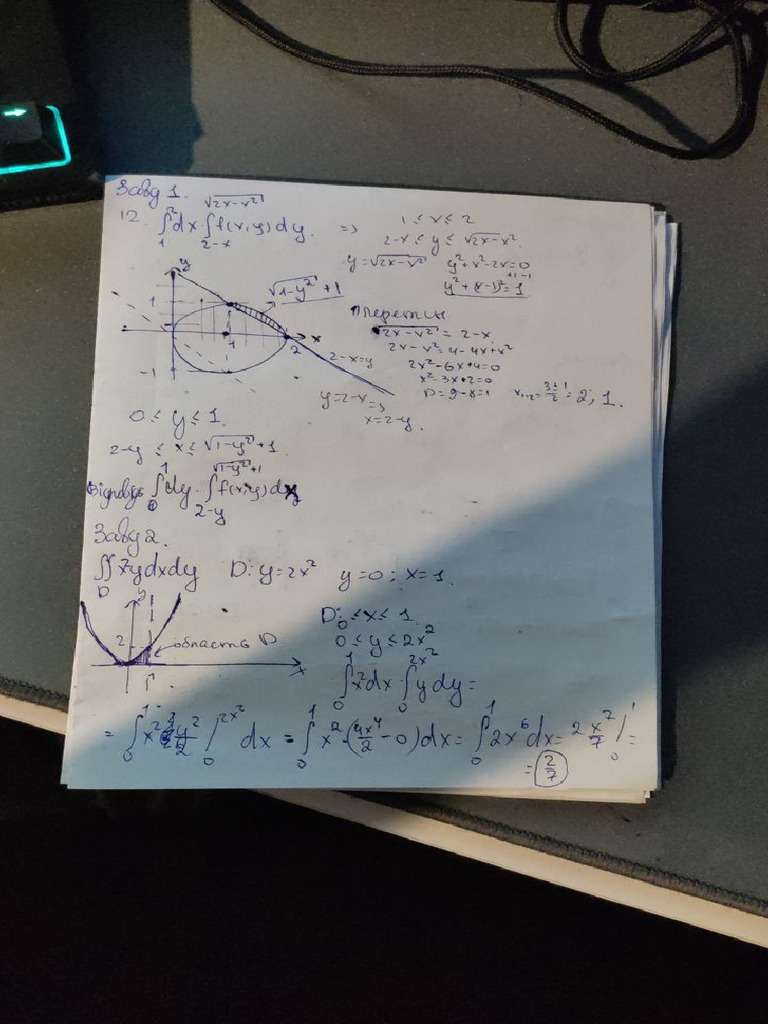 Завд 1.
12. ∫₁² dx · ∫_{2-x}^{√(2x-x²)} f(x,y) dy. =>
1 ≤ x ≤ 2
2-x ≤ y ≤ √(2x-x²)
y = √(2x-x²) y²+x²-2x=0
+1-1
y²+(x-1)²=1
y
1
√(1-y²)+1
x
1
2
-1
2-x=y
y=2-x =>
x=2-y.
√(2x-x²) = 2-x
2x-x²=4-4x+x²
2x²-6x+4=0
x²-3x+2=0
D=9-8=1 x₁,₂=(3±1)/2=2; 1.
0 ≤ y ≤ 1.
2-y ≤ x ≤ √(1-y²)+1
Відповідь ∫₀¹ dy · ∫_{2-y}^{√(1-y²)+1} f(x,y) dx
Завд 2.
∬_D dxdy D: y=2x² y=0; x=1.
y
2
область D
x
D: 0 ≤ x ≤ 1
0 ≤ y ≤ 2x²
∫₀¹ x² dx · ∫₀^{2x²} y dy =
= ∫₀¹ x² y²/2 |₀^{2x²} dx = ∫₀¹ x² · (4x⁴/2 - 0) dx = ∫₀¹ 2x⁶ dx = 2 x⁷/7 |₀¹ =
= 2/7